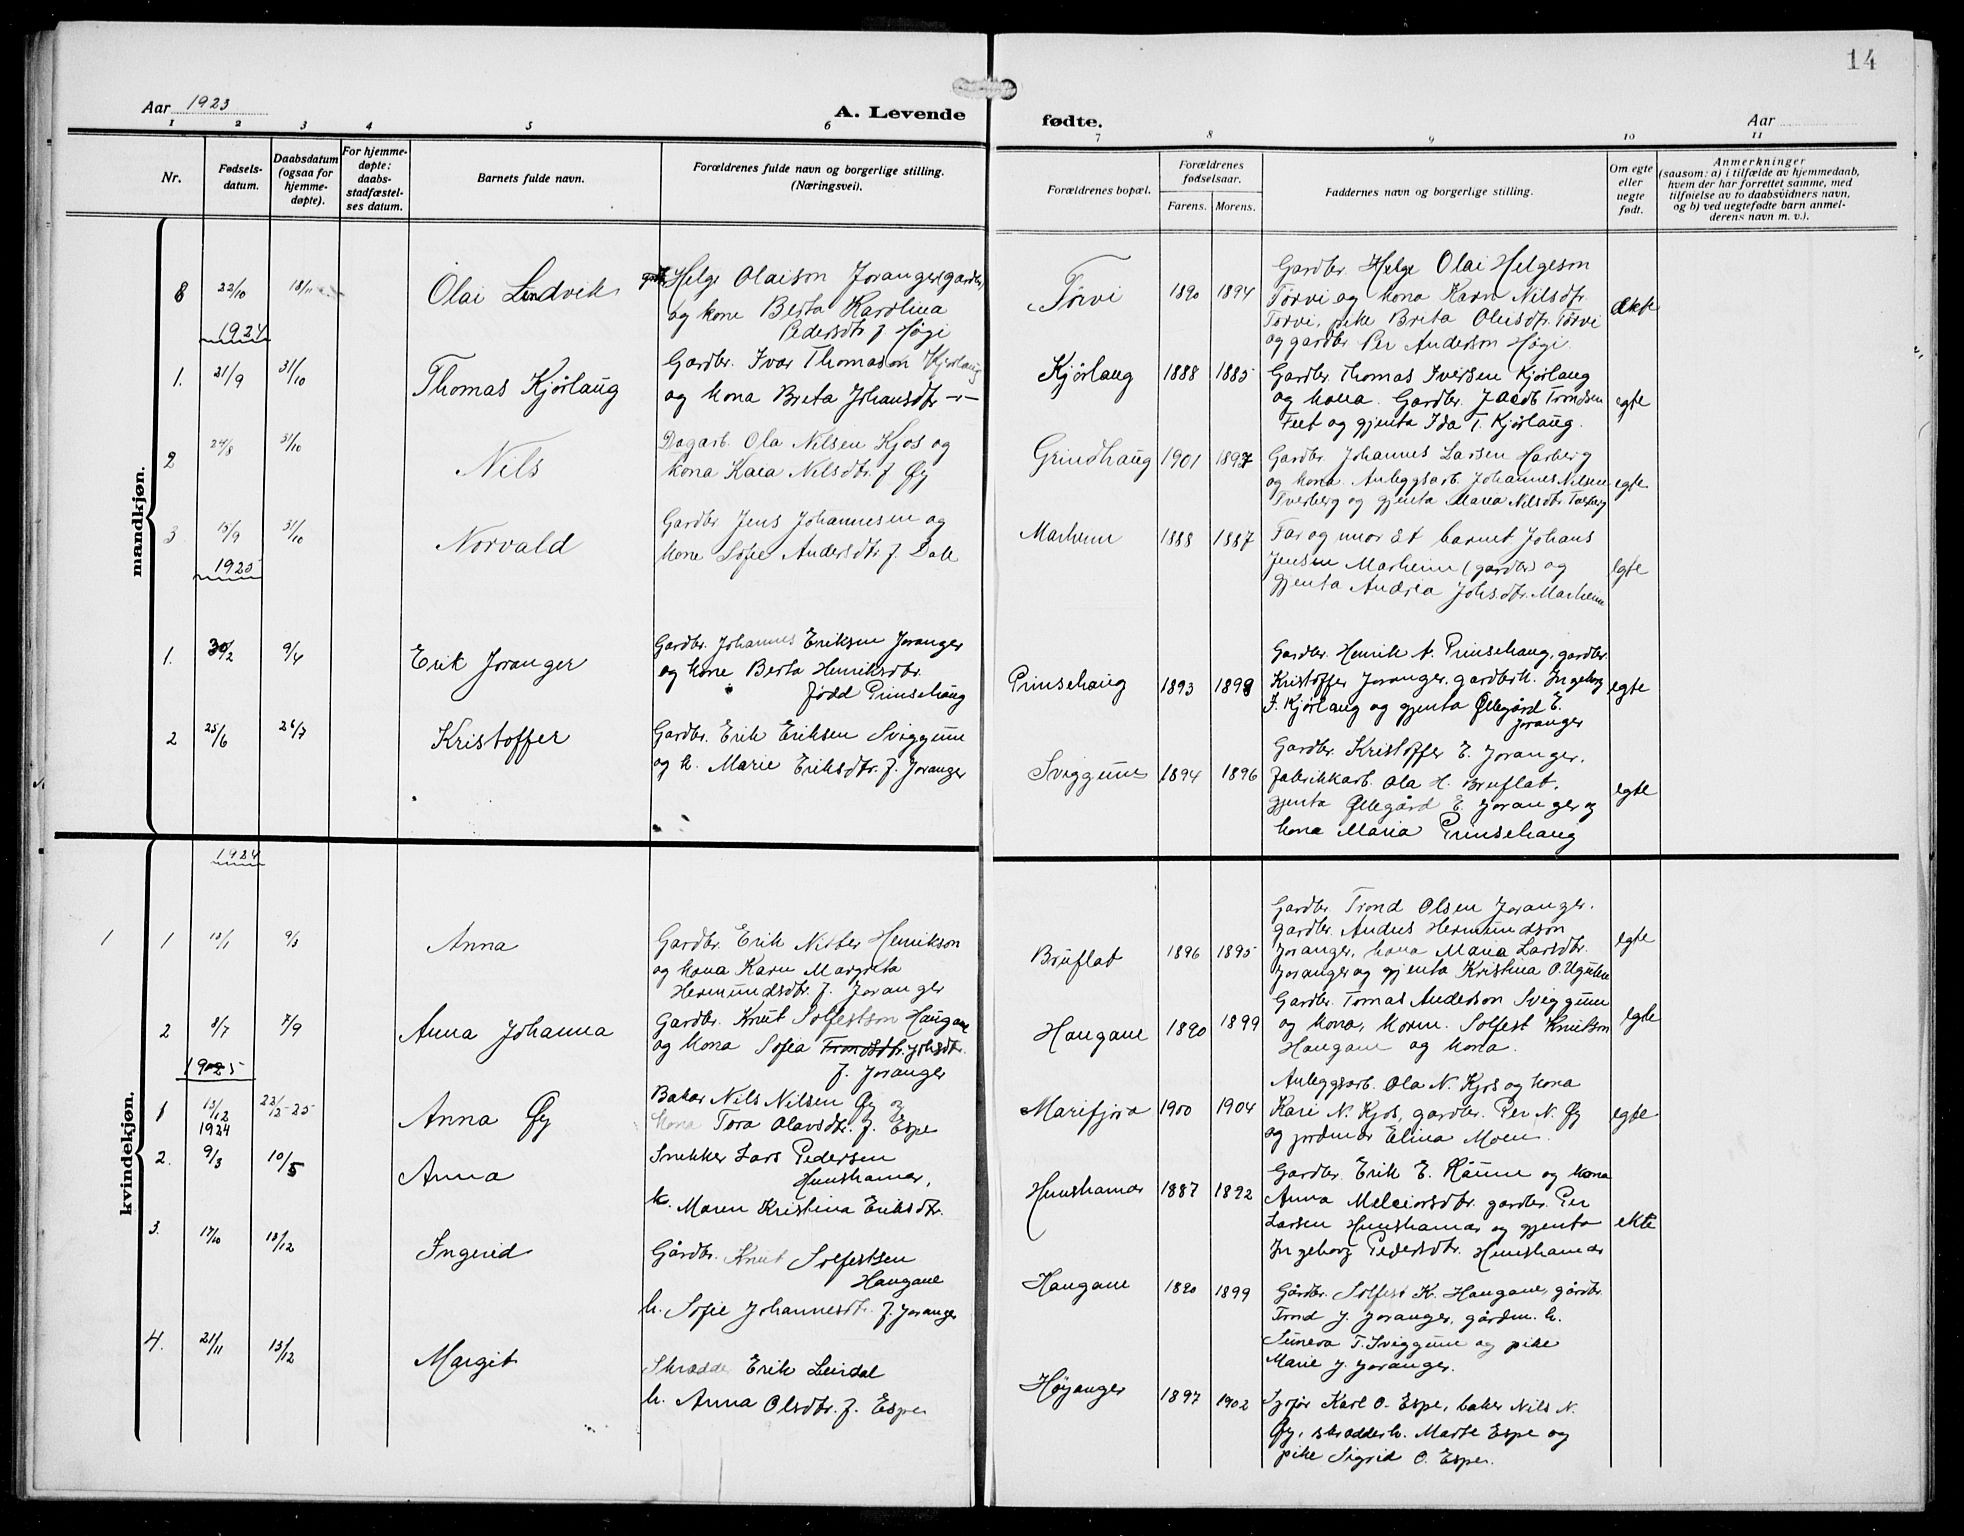 14
Aar 1923
A. Levende
fødte.
Aar
1 2 3 4 5 6 7 8 9 10 11
Nr.
Fødsels-
datum.
Daabsdatum
(ogsaa for
hjemme-
døpte).
For hjemme-
døpte:
daabs-
stadfæstel-
ses datum.
Barnets fulde navn.
Forældrenes fulde navn og borgerlige stilling.
(Næringsvei).
Forældrenes bopæl.
Forældrenes
fødselsaar.
Farens. Morens.
Faddernes navn og borgerlige stilling.
Om egte
eller
uegte
født.
Anmerkninger
(sausom: a) i tilfælde av hjemmedaab,
hvem der har forrettet samme, med
tilføielse av to daabsvidners navn,
og b) ved uegtefødte barn anmel-
derens navn m. v.).
mandkjøn.
8 22/10 18/11 Olai Lindvik
Helge Olaison Joranger (gardbr)
og kone Berta Karolina
Pedersdtr f Høgi
Tørvi 1890 1894
Gardbr. Helge Olai Helgeson
Tørvi og kona Karn Nilsdtr.
Tørvi, pike Brita Olaisdtr. Tørvi
og gardbr Per Anderson Høgi.
ækte
1924
1. 21/9 31/10 Thomas Kjørlaug
Gardbr. Ivar Thomason Kjørlaug
og kona Breta Johansdtr -"-
Kjørlaug 1888 1885
Gardbr. Thomas Iversen Kjørlaug
og kona. Gardbr. Jacob Trondsen
Feet og gjenta Ida T. Kjørlaug.
egte
2 24/8 31/10 Nils
Dagarb. Ola Nilsen Kjos og
kona Kaia Nilsdtr. f Øy
Grindhaug 1901 1897
Gardbr. Johannes Larsen Harberg
og kona. Anleggsarb. Johannes Nilsen
Tverberg og gjenta Maria Nilsdtr Tverberg
egte
3 15/9 31/10 Norvald
Gardbr Jens Johannesen og
kone Sofie Andersdtr f. Dale
Marheim 1888 1887
Far og mor åt barnet Johans
Jensen Marheim (gardbr) og
gjenta Andrea Johs.dtr. Marheim
egte
1925
1. 30/2 9/4 Erik Joranger
Gardbr. Johannes Eriksen Joranger
og kone Berta Henriksdtr.
fødd Prinsehaug
Prinsehaug 1893 1899
Gardbr. Henrik A. Prinsehaug, gardbr.
Kristoffer Joranger, gardbrk. Ingeborg
J. Kjørlaug og gjenta Øllegård E.
Joranger
egte
2 25/6 26/7 Kristoffer
Gardbr. Erik Eriksen Sviggum
og k. Marie Eriksdtr. f. Joranger
Sviggum 1894 1896
Gardbr. Kristoffer E. Joranger,
fabrikkarb. Ola H. Bruflat,
gjenta Øllegård E. Joranger og
kona Maria Prinsehaug
egte
kvindekjøn.
1924
1 1 13/1 9/3 Anna
Gardbr. Erik Nitter Henrikson
og kona Karn Margreta
Hermundsdtr. f. Joranger
Bruflat 1896 1895
Gardbr. Trond Olsen Joranger,
gardbr. Andris Hermundson
Joranger, kona Maria Larsdtr.
Joranger og gjenta Kristina O. Ugulen
egte
2 8/7 7/9 Anna Johanna
Gardbr. Knut Solfestson Haugane
og kona Sofia Trondsdtr. Johsdtr.
f. Joranger
Haugane 1890 1899
Gardbr. Tomas Anderson Sviggum
og kona, Korm. Solfest Knutson
Haugane og kona.
egte
1925
1 13/12 1924 22/2-25 Anna Øy
Bakar Nils Nilsen Øy og
kona Tora Olavsdtr. f. Espe
Marifjøra 1900 1904
Anleggsarb. Ola N. Kjos og kona
Kari N. Kjos, gardbr. Per N. Øy
og jordmor Elina Moen.
egte
2. 9/3 10/5 Anna
Snekker Lars Pedersen
Hunshamar,
k. Maren Kristina Eriksdtr.
Hunshamar 1887 1892
Gardbr. Erik E. Råum og kona
Anna Melciorsdtr. gardbr. Per
Larsen Hunshamar og gjenta
Ingeborg Pedersdtr. Hunshamar
ekte
3. 17/10 13/12 Ingerid
Gårdbr. Knut Solfestsen
Haugane
k. Sofie Johannesdtr. f. Joranger
Haugane 1890 1899
Gårdbr. Solfest K. Haugane, gårdbr.
Trond J. Joranger, gårdm. k.
Sunneva T. Sviggum og pike
Marie J. Joranger.
4. 21/11 13/12 Margit
Skradder Erik Leirdal
k. Anna Olsdtr. f. Espe
Høyanger 1897 1902
Sjofør Karl O. Espe, baker Nils N.
Øy, skradderk. Marte Espe og
pike Sigrid O. Espe.